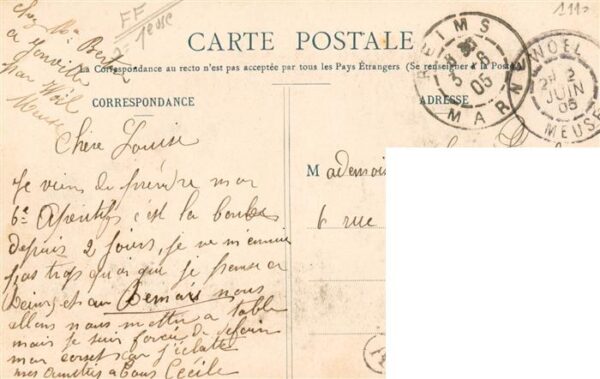 chez Mr Bertin
à Jonville
par Wöël
Meuse
FF
1euse
1110
CARTE POSTALE
La Correspondance au recto n'est pas acceptée par tous les Pays Étrangers (Se renseigner à la Poste)
CORRESPONDANCE
ADRESSE
REIMS
05
MARN
WOËL
2
JUIN
05
MEUSE
Chère Louise
Je viens de prendre mon
6e Apéritifs c'est la bombe
depuis 2 jours, je ne m'ennuie
pas trop quoique je pense a
Reims et au Demais nous
allons nous mettre a table
mais je suis forcée de défaire
mon corset car j'éclate
mes amitiés a tous Cecile
Mademois
6 rue